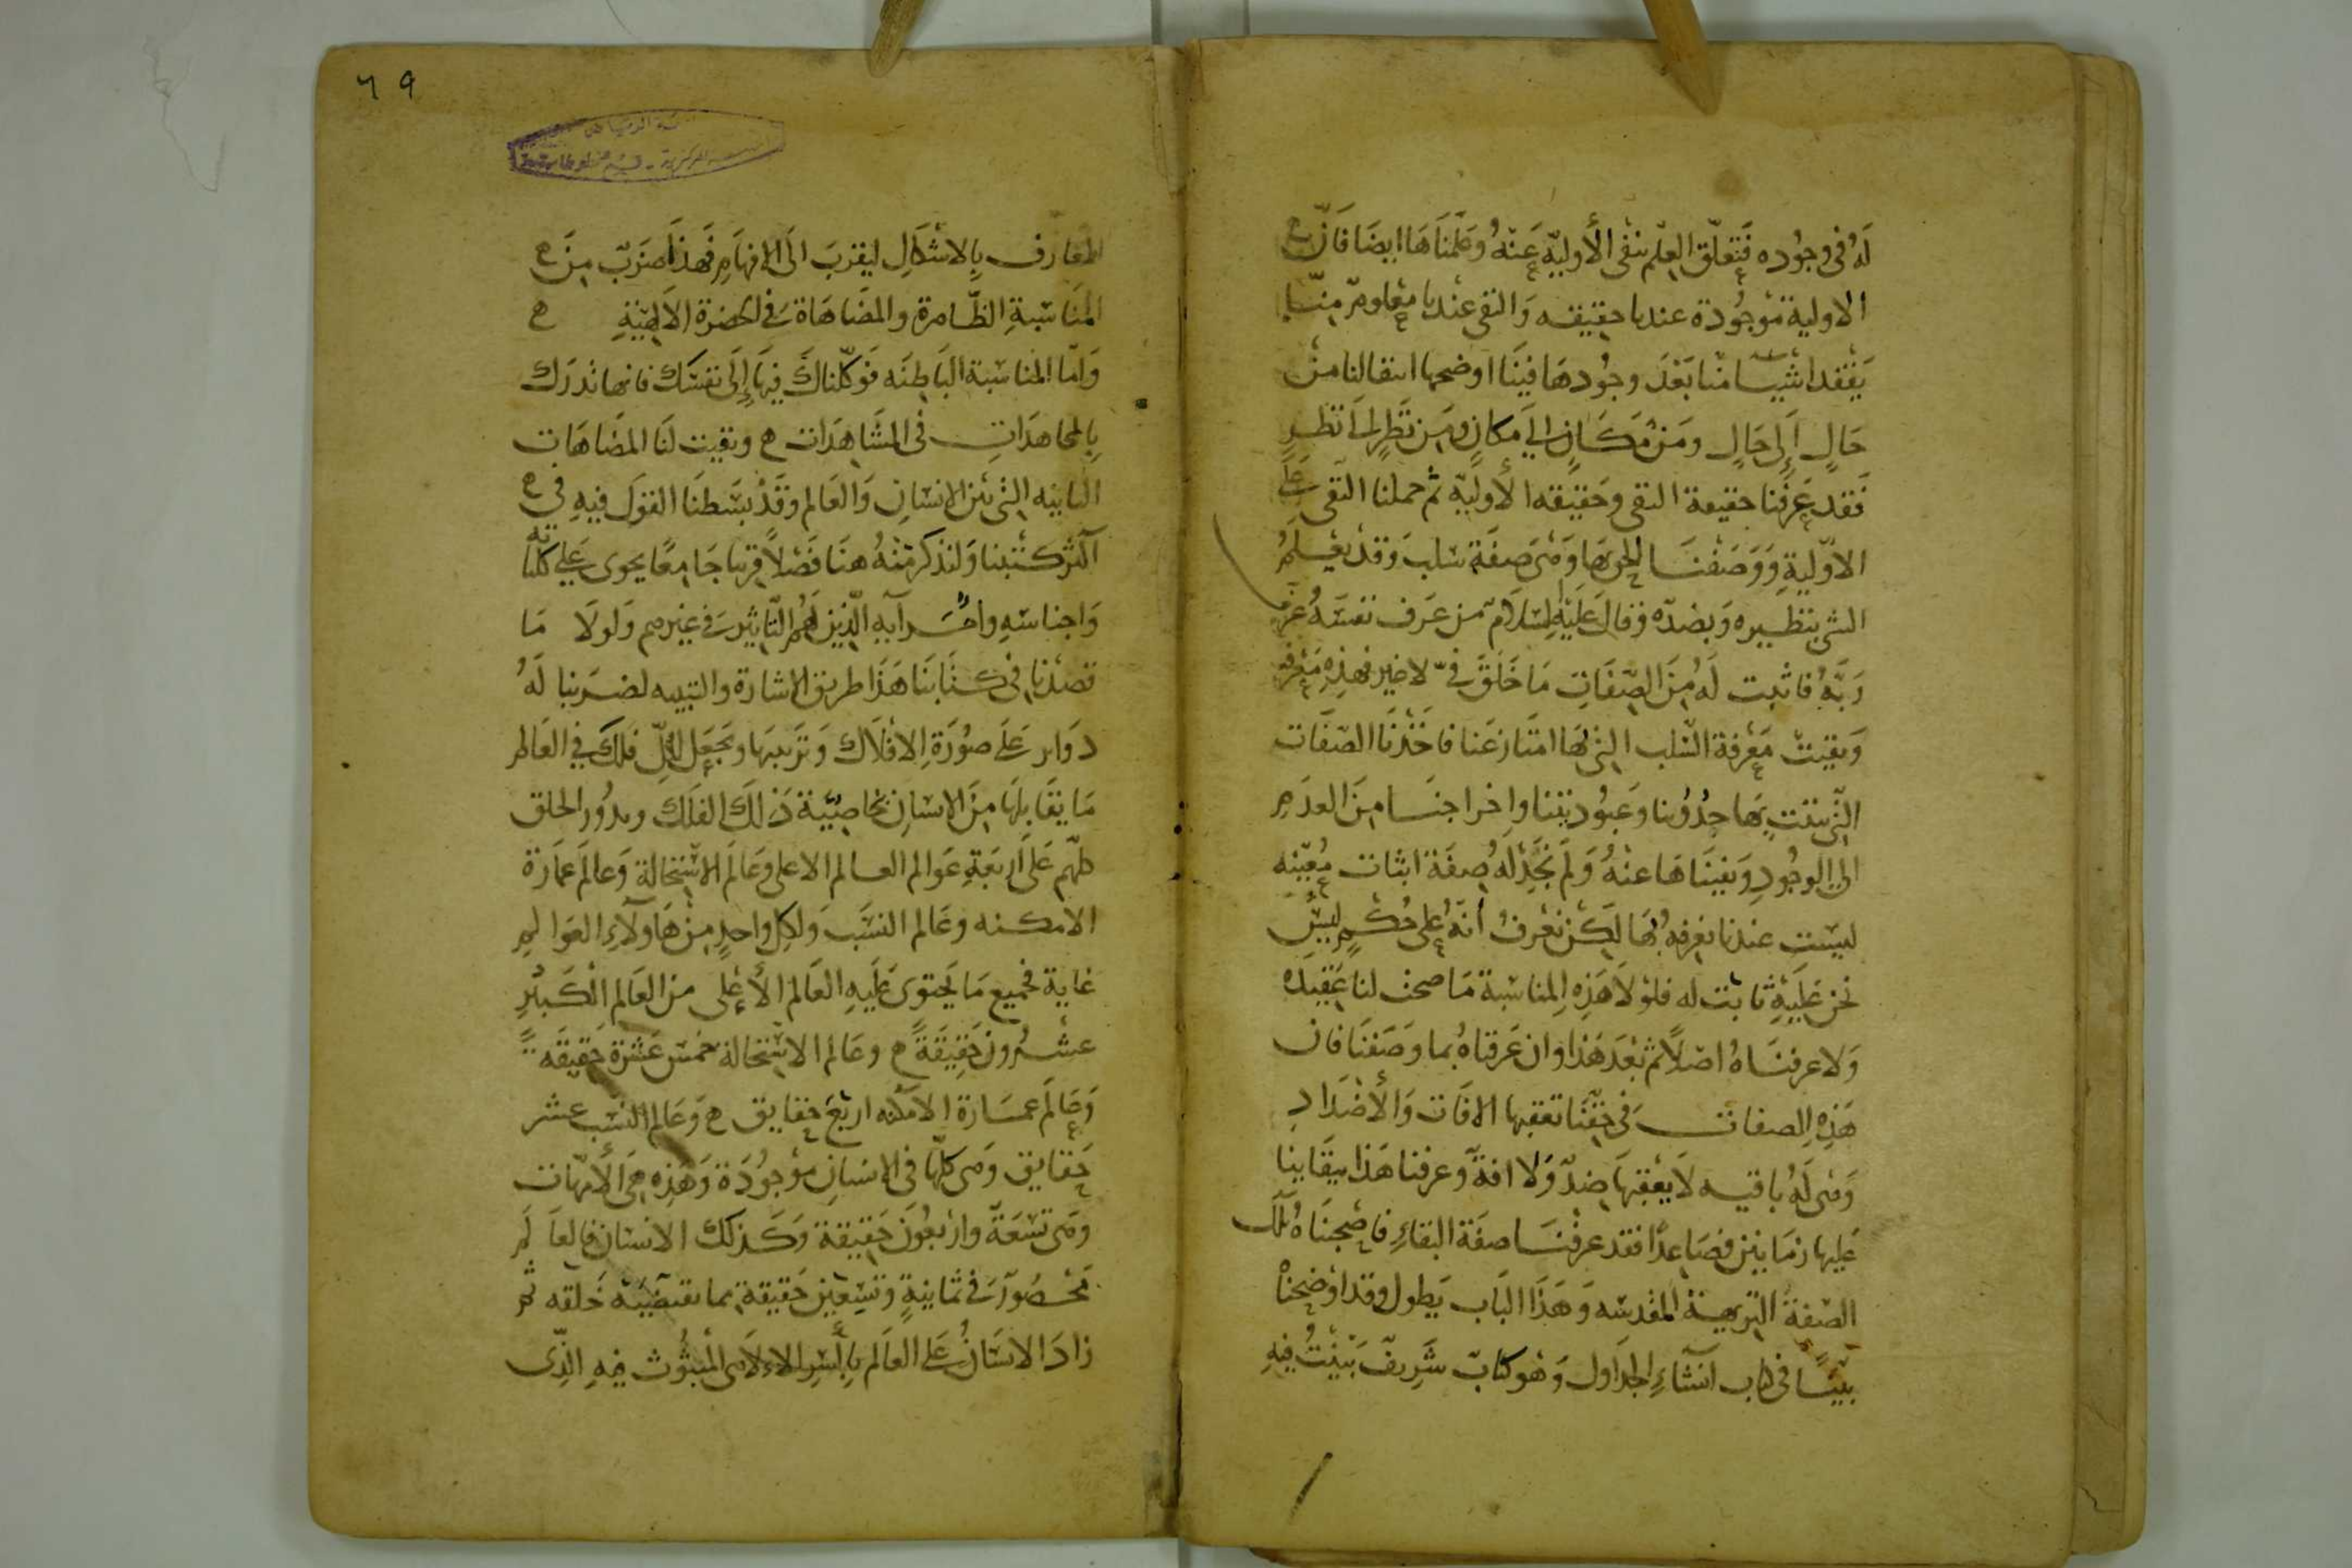 لَهُ في وجُوده فَتَعلّق العِلْم بنَفى الأوليّة عَنهُ وعَلمنَاهَا ايضَا فَانّ
الاولية مَوجُودة عندنا حقيقه وَالنفى عندنا مَعْلومٌ منّا
يَفْقد اشْيا منّا بَعْدَ وجُودهَا فينَا اوضحها انتقالنا مِنْ
حَالٍ اِلَى حَالٍ ومَنْ مَكَانٍ الىَ مكانٍ ومِن نَظَرٍ اِلىَ نَظَرٍ
فَقد عَرفنا حقيقة النفى وحَقيقه الأوليّة ثم حملنا النفى عَلَى
الاوّليةِ وَوَصَفنَا الحق بهَا وَهىَ صِفَة سَلب وَقد يعْلمُ
الشى بنظيره وَبضدّه وَقالَ عَلَيْهِ السَلَام من عَرَف نفسَهُ عَرَفَ
رَبَّهُ فاثبت لَهُ مِنَ الصّفَاتِ مَا خَلَقَ في لا غير فهذِه مَعْرفة
وَبقيتْ مَعْرفة السَّلب الّتى بهَا امتَاز عَنا فاخَذْنَا الصّفَات
التى ثبتت بهَا حدُوثنا وَعبُوديتنا واخراجنَا مِنَ العدَمِ
الى الوجُودِ وَنفينَاهَا عنهُ وَلَم نَجِدْ لَهُ صِفَة اثبَات مُعيّنه
ليسَت عندنا نعرفهُ بهَا لكن نَعْرفُ أنهُ على حُكمٍ لَيْسَ
نحن عَلَيْهِ ثابت له فلوْلَا هَذِهِ المناسَبة مَا صحت لنا عَقيدة
وَلا عرفنَاهُ اصْلاً ثم بَعْدَ هَذا وان عَرفناهُ بما وَصَفنَا فان
هَذِهِ الصفات فى حَقّنا تعقبها الافَات وَالأضدَاد
وَهى لَهُ باقيه لا يَعْقبهَا ضِدّ وَلا افة وَعرفنا هَذا ببقَاينا
عَليها زمَانين فصَاعدًا فقد عرفنَا صفة البقاءِ فاصحبنَاهُ تلكَ
الصّفة النزيهة المقدسَه وَهَذا البَاب يَطول وقد اوْضحناهُ
بيّنًا فى كتاب انشاءِ الجداول وَهُو كتابٌ شَريفٌ بَيّنتُ فِيهِ
٦٩
المعَارف بِالاشْكَالِ ليقربَ الىَ الافهَامِ فَهذَا ضَربٌ مِنَ
المنَاسَبةِ الظّاهرة والمضَاهَاة فى الحضرة الالهيّةِ
وَامّا المنَاسَبة البَاطنَه فَوكّلنَاكَ فيهَا اِلَى نفسَك فانها تدرَك
بِالمجاهدَاتِ فى المشَاهدَات وبقيت لَنَا المضَاهَات
الثانيه التى بَيْن الانسَانِ وَالعَالم وقَدْ بَسَطنَا القولَ فيهِ فى
اكثر كتبنا وَلنذكر مِنْهُ هنَا فَصْلاً قريبا جَامِعًا يحوى عَلى كليّاته
وَاجناسَهِ وأمَرايهِ الّذِين لَهُم التّاثير فى غيرهم وَلولَا مَا
قصَدْنَا فى كتَابنَا هَذَا طريق الاشارة والتنبيه لضَربنا لَهُ
دوَاير عَلَى صُورَةِ الافلَاك وَترتيبهَا ونجعَل لكلّ فلَك فى العَالم
مَا يقابِلهَا مِنَ الانسَان بخاصيّة ذَلكَ الفلَكَ وبدُور الحلق
كلّهم عَلَى اربَعَةِ عَوالم العالم الاعلى وعَالم الاسْتحَالة وعَالم عمَارة
الامكنه وعَالم النسَب وَلكل واحدٍ مِنْ هَاؤلاءِ العَوالم
غاية فجميع مَا يَحتوى عَلَيهِ العَالم الأعْلَى من العَالم الكَبيْرِ
عشرُون حَقِيقَةً وعَالم الاسْتحَالة خمسَ عَشرة حَقيقَه
وَعَالم عمَارة الامكنه اربَعْ حقايق وَعَالم النسَب عشر
حَقايق وَهى كلّها فى الانسَانِ موْجُودَة وَهَذِهِ هِىَ الأمّهَات
وهَى تسْعَة وارْبَعُون حَقِيقة وَكَذلكَ الانسَان فالعَالَم
محصُور فى ثمانيةٍ وتسْعِين حَقيقة بما تقتضيهَ خَلقه ثم
زادَ الانسَانُ عَلى العَالَم بِالسّر الالاهى المبثُوث فيهِ الّذى